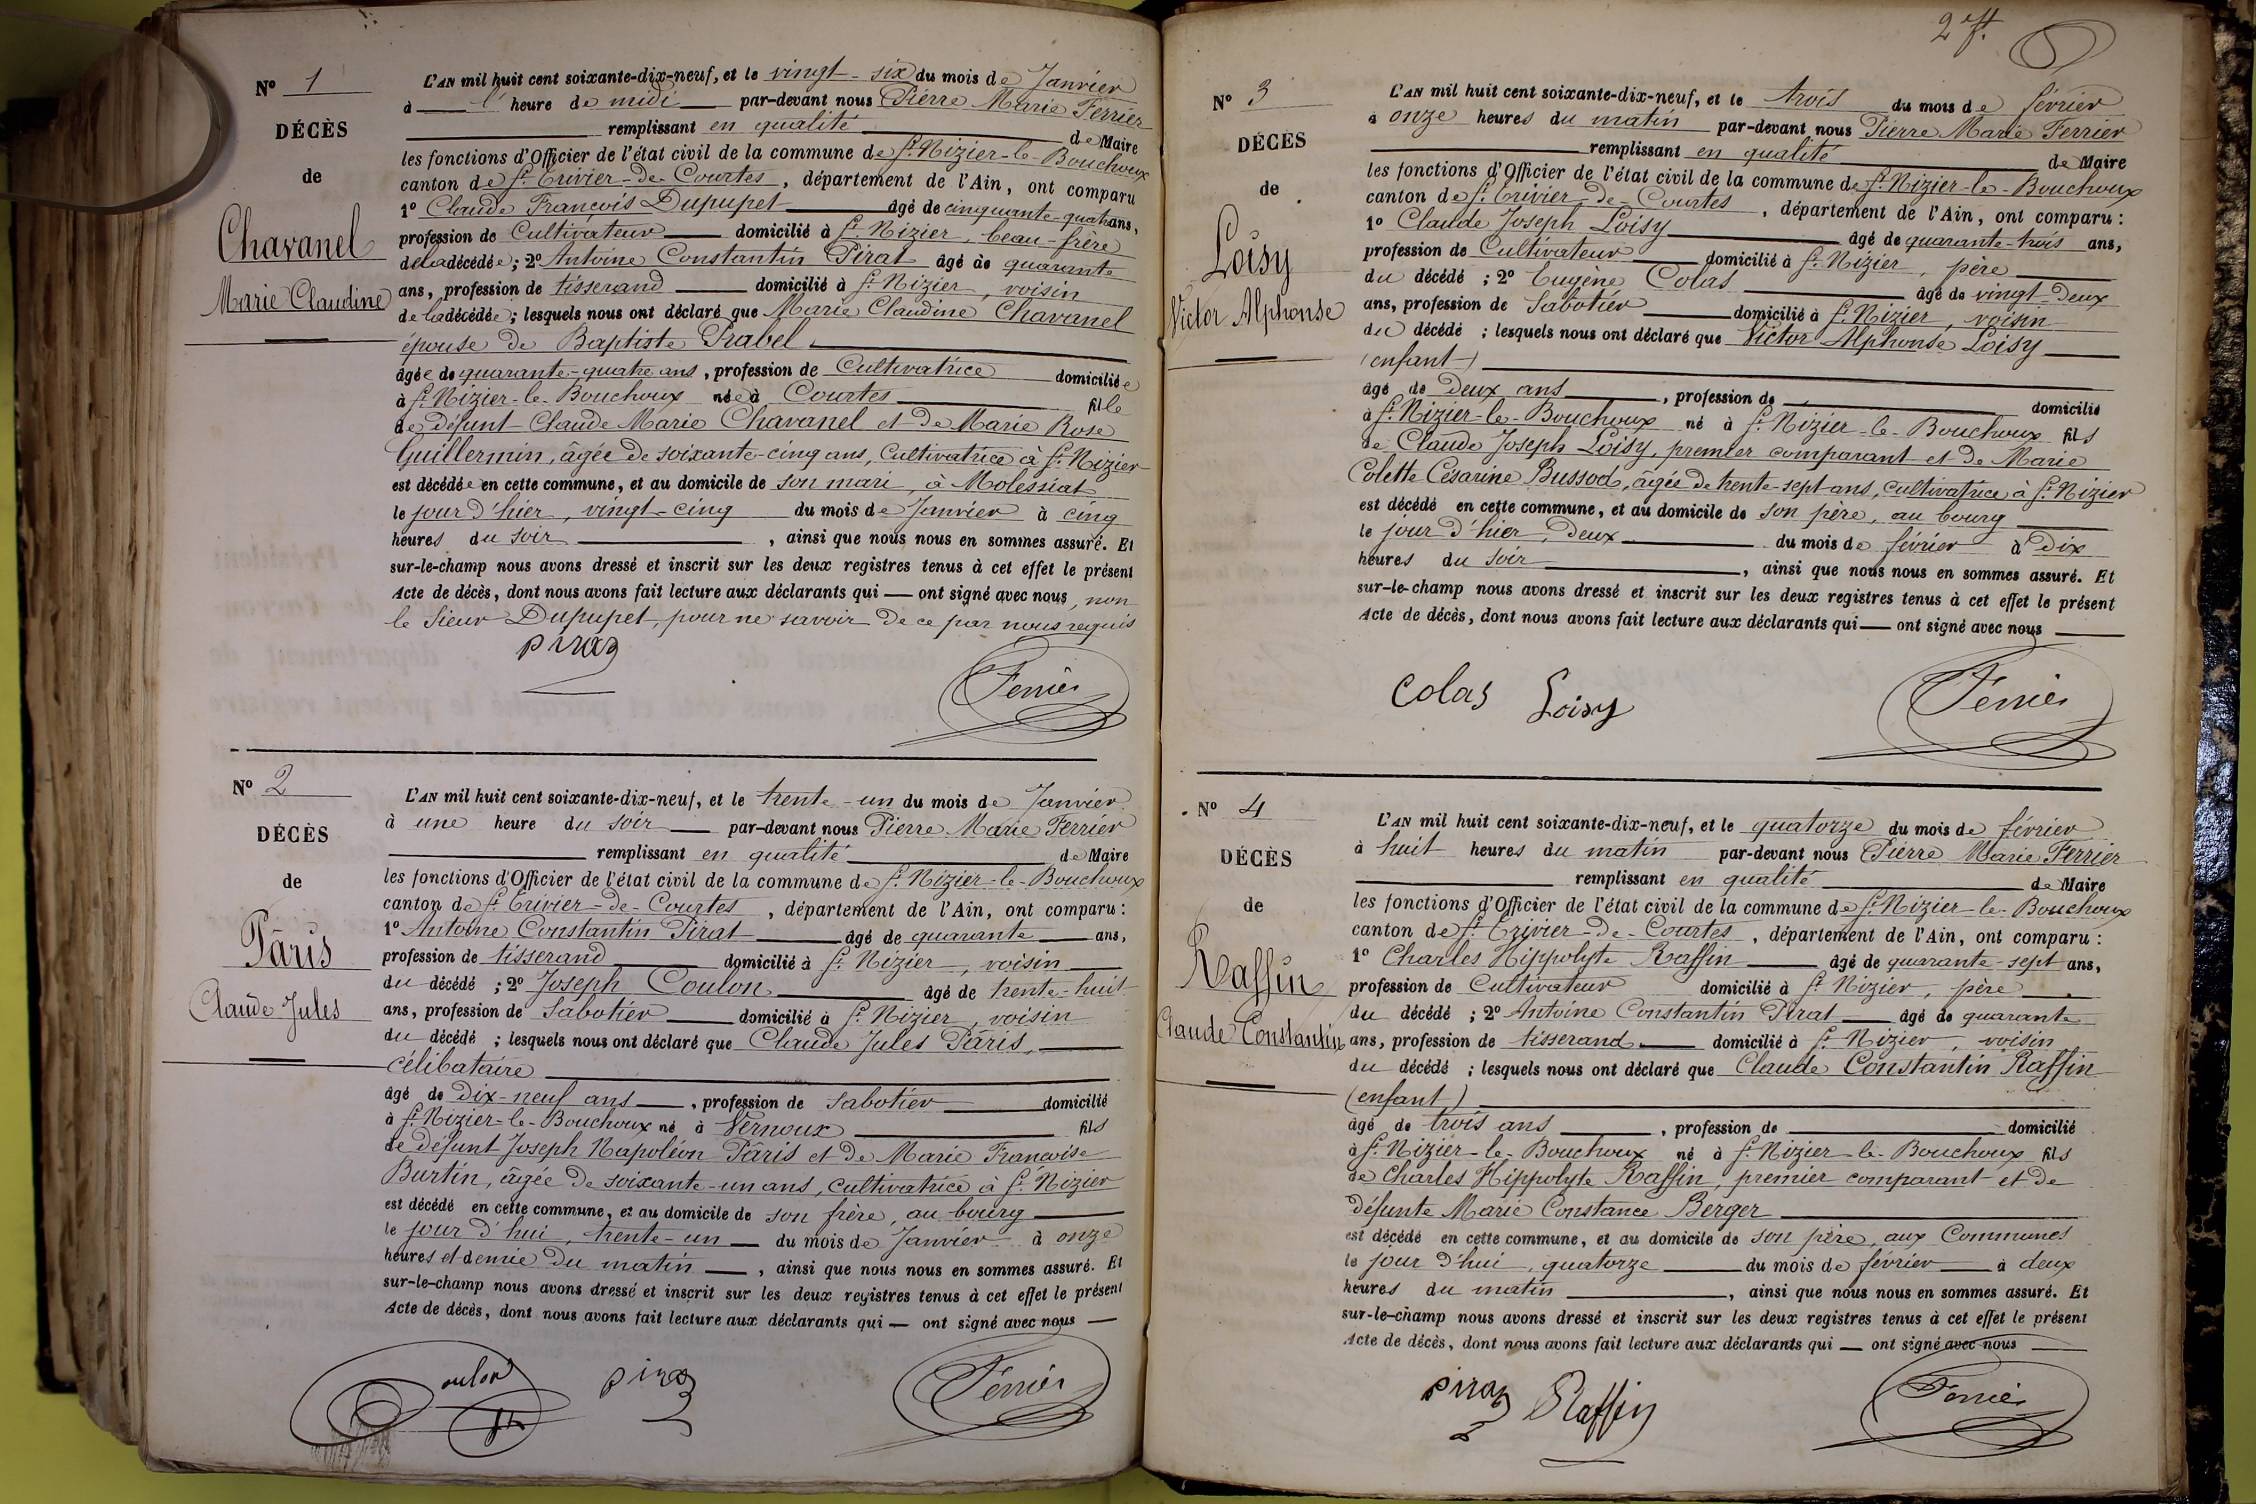 Nº 1
DÉCÈS
de
Chavanel
Marie Claudine
L'AN mil huit cent soixante-dix-neuf, et le vingt-six du mois de Janvier
à l' heure de midi par-devant nous Pierre Marie Ferrier
remplissant en qualité de Maire
les fonctions d'Officier de l'état civil de la commune de St Nizier-le-Bouchoux
canton de St Trivier-de-Courtes, département de l'Ain, ont comparu
1º Claude François Dupupet âgé de cinquante-quatre ans,
profession de Cultivateur domicilié à St Nizier, beau-frère
de la décédée; 2º Antoine Constantin Pirat âgé de quarante
ans, profession de tisserand domicilié à St Nizier, voisin
de la décédée; lesquels nous ont déclaré que Marie Claudine Chavanel
épouse de Baptiste Prabel
âgée de quarante-quatre ans, profession de Cultivatrice domiciliée
à St Nizier-le-Bouchoux née à Courtes fille
de défunt Claude Marie Chavanel et de Marie Rose
Guillermin, âgée de soixante-cinq ans, Cultivatrice à St Nizier
est décédée en cette commune, et au domicile de son mari, à Molessiat
le jour d'hier, vingt-cinq du mois de Janvier à cinq
heures du soir, ainsi que nous nous en sommes assuré. Et
sur-le-champ nous avons dressé et inscrit sur les deux registres tenus à cet effet le présent
Acte de décès, dont nous avons fait lecture aux déclarants qui — ont signé avec nous, non
le Sieur Dupupet, pour ne savoir de ce par nous requis
Pirat
Ferrier
Nº 2
DÉCÈS
de
Pâris
Claude Jules
L'AN mil huit cent soixante-dix-neuf, et le trente-un du mois de Janvier
à une heure du soir par-devant nous Pierre Marie Ferrier
remplissant en qualité de Maire
les fonctions d'Officier de l'état civil de la commune de St Nizier-le-Bouchoux
canton de St Trivier-de-Courtes, département de l'Ain, ont comparu:
1º Antoine Constantin Pirat âgé de quarante ans,
profession de tisserand domicilié à St Nizier, voisin
du décédé; 2º Joseph Coulon âgé de trente-huit
ans, profession de Sabotier domicilié à St Nizier, voisin
du décédé; lesquels nous ont déclaré que Claude Jules Pâris,
célibataire
âgé de Dix-neuf ans, profession de sabotier domicilié
à St Nizier-le-Bouchoux né à Vernoux fils
de défunt Joseph Napoléon Pâris et de Marie Françoise
Burtin, âgée de soixante-un ans, cultivatrice à St Nizier
est décédé en cette commune, et au domicile de son frère, au bourg
le jour d'hui, trente-un du mois de Janvier à onze
heures et demie du matin, ainsi que nous nous en sommes assuré. Et
sur-le-champ nous avons dressé et inscrit sur les deux registres tenus à cet effet le présent
Acte de décès, dont nous avons fait lecture aux déclarants qui — ont signé avec nous —
Coulon
Pirat
Ferrier
2 ff.
Nº 3
DÉCÈS
de
Loisy
Victor Alphonse
L'AN mil huit cent soixante-dix-neuf, et le trois du mois de février
à onze heures du matin par-devant nous Pierre Marie Ferrier
remplissant en qualité de Maire
les fonctions d'Officier de l'état civil de la commune de St Nizier-le-Bouchoux
canton de St Trivier-de-Courtes, département de l'Ain, ont comparu:
1º Claude Joseph Loisy âgé de quarante-trois ans,
profession de Cultivateur domicilié à St Nizier, père
du décédé; 2º Eugène Colas âgé de vingt-deux
ans, profession de Sabotier domicilié à St Nizier, voisin
du décédé; lesquels nous ont déclaré que Victor Alphonse Loisy
(enfant)
âgé de deux ans, profession de domicilié
à St Nizier-le-Bouchoux né à St Nizier-le-Bouchoux fils
de Claude Joseph Loisy, premier comparant et de Marie
Colette Césarine Bussod, âgée de trente-sept ans, cultivatrice à St Nizier
est décédé en cette commune, et au domicile de son père, au bourg
le jour d'hier, Deux du mois de février à dix
heures du soir, ainsi que nous nous en sommes assuré. Et
sur-le-champ nous avons dressé et inscrit sur les deux registres tenus à cet effet le présent
Acte de décès, dont nous avons fait lecture aux déclarants qui — ont signé avec nous
Colas
Loisy
Ferrier
Nº 4
DÉCÈS
de
Raffin
Claude Constantin
L'AN mil huit cent soixante-dix-neuf, et le quatorze du mois de février
à huit heures du matin par-devant nous Pierre Marie Ferrier
remplissant en qualité de Maire
les fonctions d'Officier de l'état civil de la commune de St Nizier-le-Bouchoux
canton de St Trivier-de-Courtes, département de l'Ain, ont comparu:
1º Charles Hippolyte Raffin âgé de quarante-sept ans,
profession de Cultivateur domicilié à St Nizier, père
du décédé; 2º Antoine Constantin Pirat âgé de quarante
ans, profession de tisserand domicilié à St Nizier, voisin
du décédé; lesquels nous ont déclaré que Claude Constantin Raffin
(enfant)
âgé de trois ans, profession de domicilié
à St Nizier-le-Bouchoux né à St Nizier-le-Bouchoux fils
de Charles Hippolyte Raffin, premier comparant et de
défunte Marie Constance Berger
est décédé en cette commune, et au domicile de son père, aux Communes
le jour d'hui, quatorze du mois de février à deux
heures du matin, ainsi que nous nous en sommes assuré. Et
sur-le-champ nous avons dressé et inscrit sur les deux registres tenus à cet effet le présent
Acte de décès, dont nous avons fait lecture aux déclarants qui — ont signé avec nous
Pirat
Raffin
Ferrier